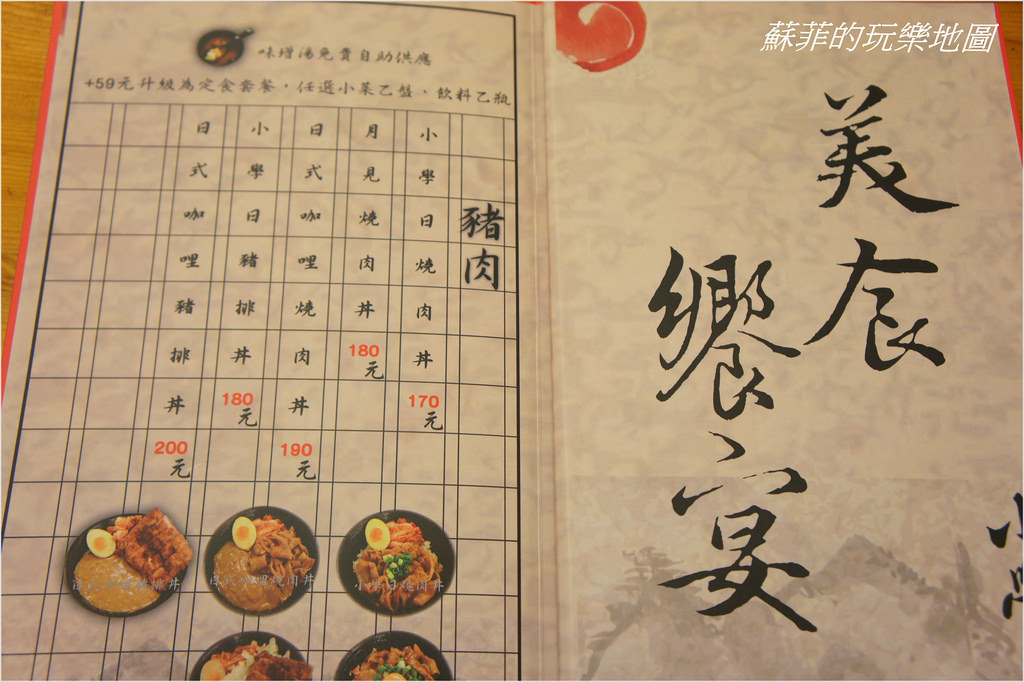 蘇菲的玩樂地圖
美食
饗宴
味增湯免費自助供應
+59元升級為定食套餐，任選小菜乙盤、飲料乙瓶
豬肉
小學日燒肉丼 170元
月見燒肉丼 180元
日式咖哩燒肉丼 190元
小學日豬排丼 180元
日式咖哩豬排丼 200元
日式咖哩豬排丼
日式咖哩燒肉丼
小學日燒肉丼